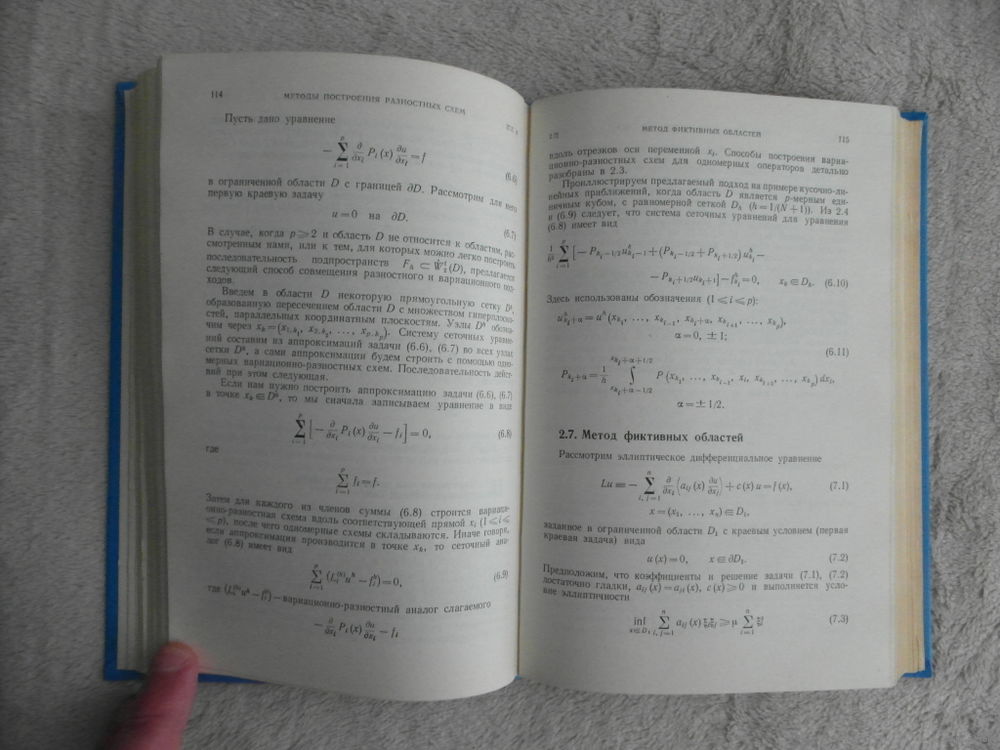 114
МЕТОДЫ ПОСТРОЕНИЯ РАЗНОСТНЫХ СХЕМ
Пусть дано уравнение
− ∑_{i=1}^{p} ∂/∂x_i P_i (x) ∂u/∂x_i = f
(6.6)
в ограниченной области D с границей ∂D. Рассмотрим для него
первую краевую задачу
u = 0 на ∂D.
(6.7)
В случае, когда p ⩾ 2 и область D не относится к областям, рас-
смотренным нами, или к тем, для которых можно легко построить
последовательность подпространств F_h ⊂ W (D), предлагается
следующий способ совмещения разностного и вариационного под-
ходов.
Введем в области D некоторую прямоугольную сетку D^h,
образованную пересечением области D с множеством гиперплоско-
стей, параллельных координатным плоскостям. Узлы D^h обозна-
чим через x_k = (x_{1,k_1}, x_{2,k_2}, ..., x_{p,k_p}). Систему сеточных уравне-
ний составим из аппроксимаций задачи (6.6), (6.7) во всех узлах
сетки D^h, а сами аппроксимации будем строить с помощью одно-
мерных вариационно-разностных схем. Последовательность дейст-
вий при этом следующая.
Если нам нужно построить аппроксимацию задачи (6.6), (6.7)
в точке x_k ∈ D^h, то мы сначала записываем уравнение в виде
∑_{i=1}^{p} [− ∂/∂x_i P_i (x) ∂u/∂x_i − f_i] = 0,
(6.8)
где
∑_{i=1}^{p} f_i = f.
Затем для каждого из членов суммы (6.8) строится вариаци-
онно-разностная схема вдоль соответствующей прямой x_i (1 ⩽ i ⩽
⩽ p), после чего одномерные схемы складываются. Иначе говоря,
если аппроксимация производится в точке x_k, то сеточный ана-
лог (6.8) имеет вид
∑_{i=1}^{p} (L_i^{(k)} u^h − f_i^h) = 0,
(6.9)
где (L_i^{(k)} u^h − f_i^h) — вариационно-разностный аналог слагаемого
− ∂/∂x_i P_i (x) ∂u/∂x_i − f_i
МЕТОД ФИКТИВНЫХ ОБЛАСТЕЙ
115
вдоль отрезков оси переменной x_i. Способы построения вариа-
ционно-разностных схем для одномерных операторов детально
разобраны в 2.3.
Проиллюстрируем предлагаемый подход на примере кусочно-ли-
нейных приближений, когда область D является p-мерным еди-
ничным кубом, с равномерной сеткой D_h (h = 1/(N + 1)). Из 2.4
и (6.9) следует, что система сеточных уравнений для уравнения
(6.8) имеет вид
∑_{i=1}^{p} [− P_{k_i−1/2} u^h_{k_i−1} + (P_{k_i−1/2} + P_{k_i+1/2}) u^h_{k_i} −
− P_{k_i+1/2} u_{k_i+1}] − f^h_{k_i} = 0, x_k ∈ D_h. (6.10)
Здесь использованы обозначения (1 ⩽ i ⩽ p):
u^h_{k_i+α} = u^h (x_{k_1}, ..., x_{k_{i−1}}, x_{k_i+α}, x_{k_{i+1}}, ..., x_{k_p}),
α = 0, ± 1;
(6.11)
P_{k_i+α} = 1/h ∫_{x_{k_i+α−1/2}}^{x_{k_i+α+1/2}} P (x_{k_1}, ..., x_{k_{i−1}}, x_i, x_{k_{i+1}}, ..., x_{k_p}) dx_i,
α = ± 1/2.
2.7. Метод фиктивных областей
Рассмотрим эллиптическое дифференциальное уравнение
Lu ≡ − ∑_{i, j=1}^{n} ∂/∂x_i (a_{ij} (x) ∂u/∂x_j) + c (x) u = f (x), (7.1)
x = (x_1, ..., x_n) ∈ D_1,
заданное в ограниченной области D_1 с краевым условием (первая
краевая задача) вида
u (x) = 0, x ∈ ∂D_1. (7.2)
Предположим, что коэффициенты и решение задачи (7.1), (7.2)
достаточно гладки, a_{ij} (x) = a_{ji} (x), c (x) ⩾ 0 и выполняется усло-
вие эллиптичности
inf_{x ∈ D_1} ∑_{i, j=1}^{n} a_{ij} (x) ξ_i ξ_j ⩾ μ ∑_{i=1}^{n} ξ_i^2 (7.3)